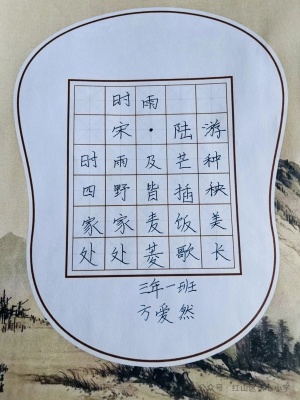 时雨
宋·陆游
时雨及芒种
四野皆插秧
家家麦饭美
处处菱歌长
三年一班
方爱然